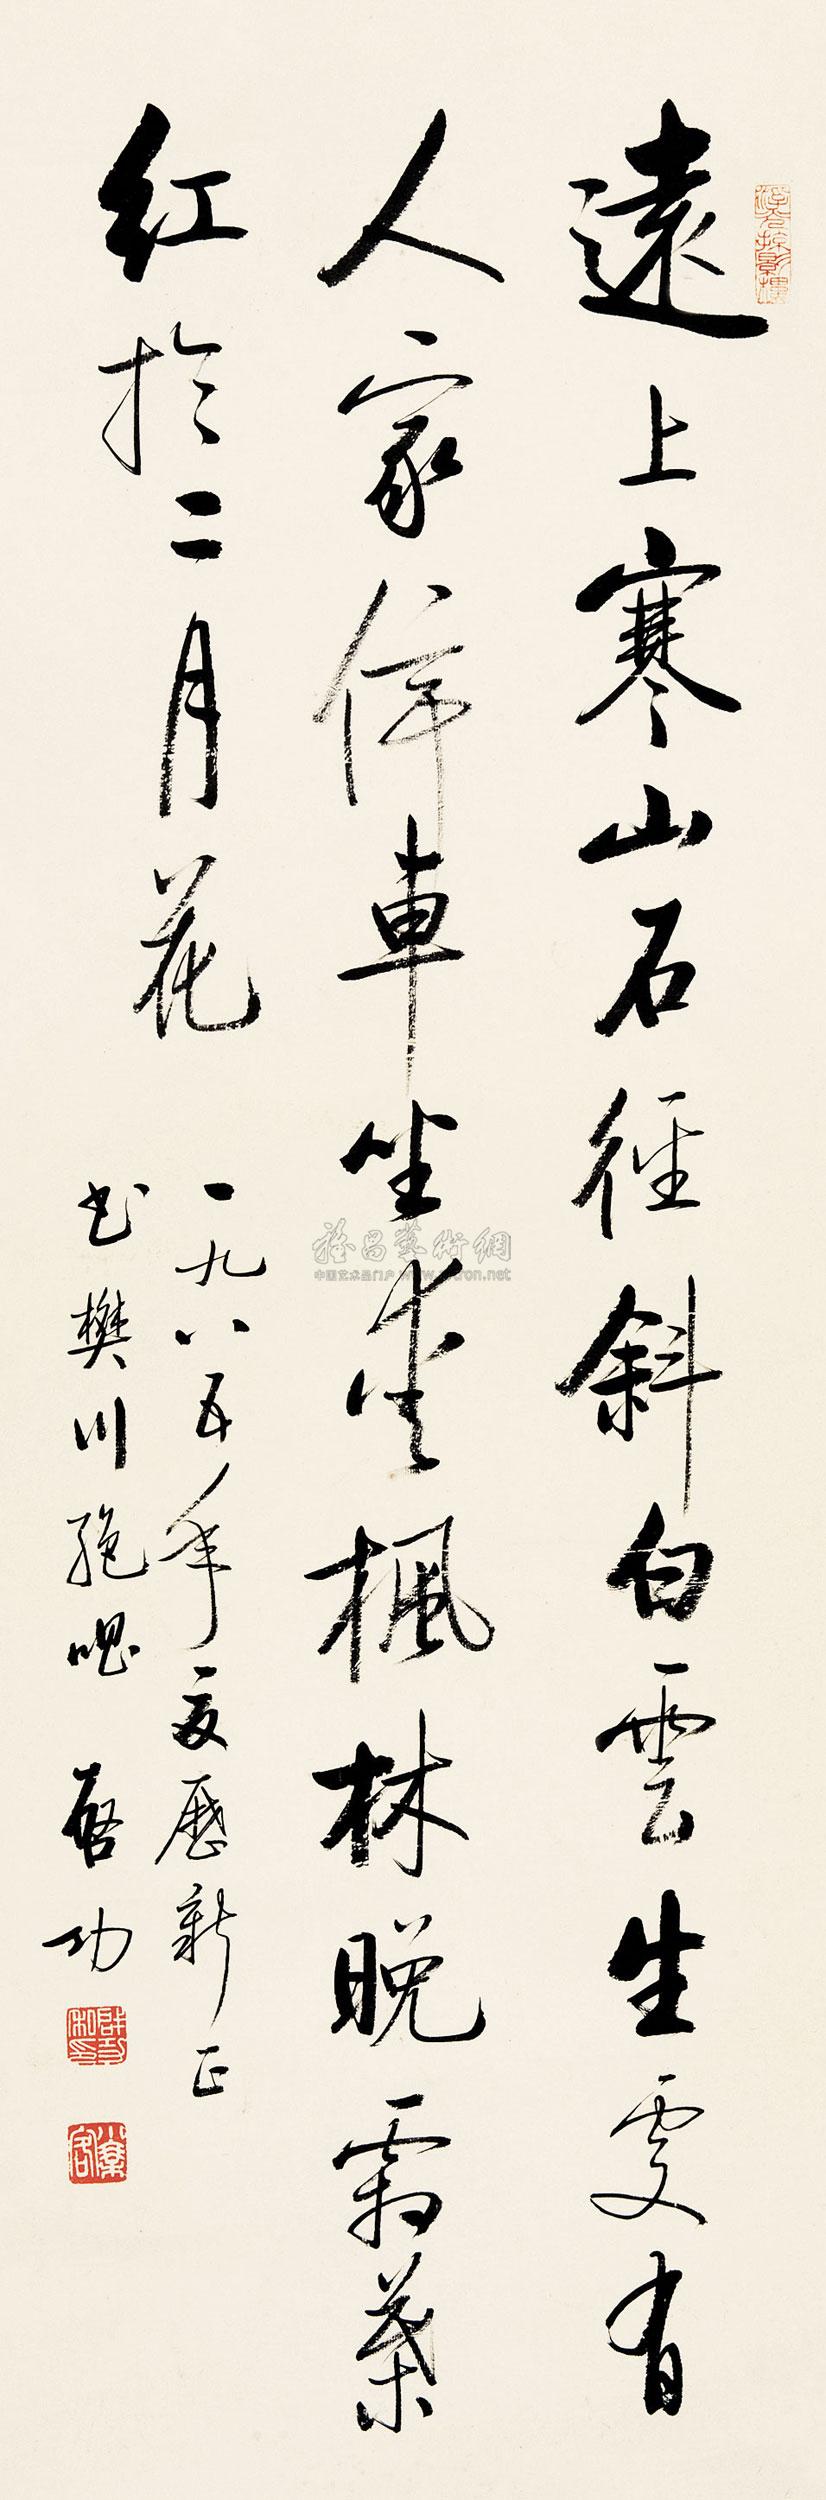 遠上寒山石徑斜白雲生處有
人家停車坐愛楓林晚霜葉
紅於二月花
一九八五年夏歷新正
書樊川絕唱 啓功
浮光掩影樓
雅昌藝術網
中国艺术品门户 www.artron.net